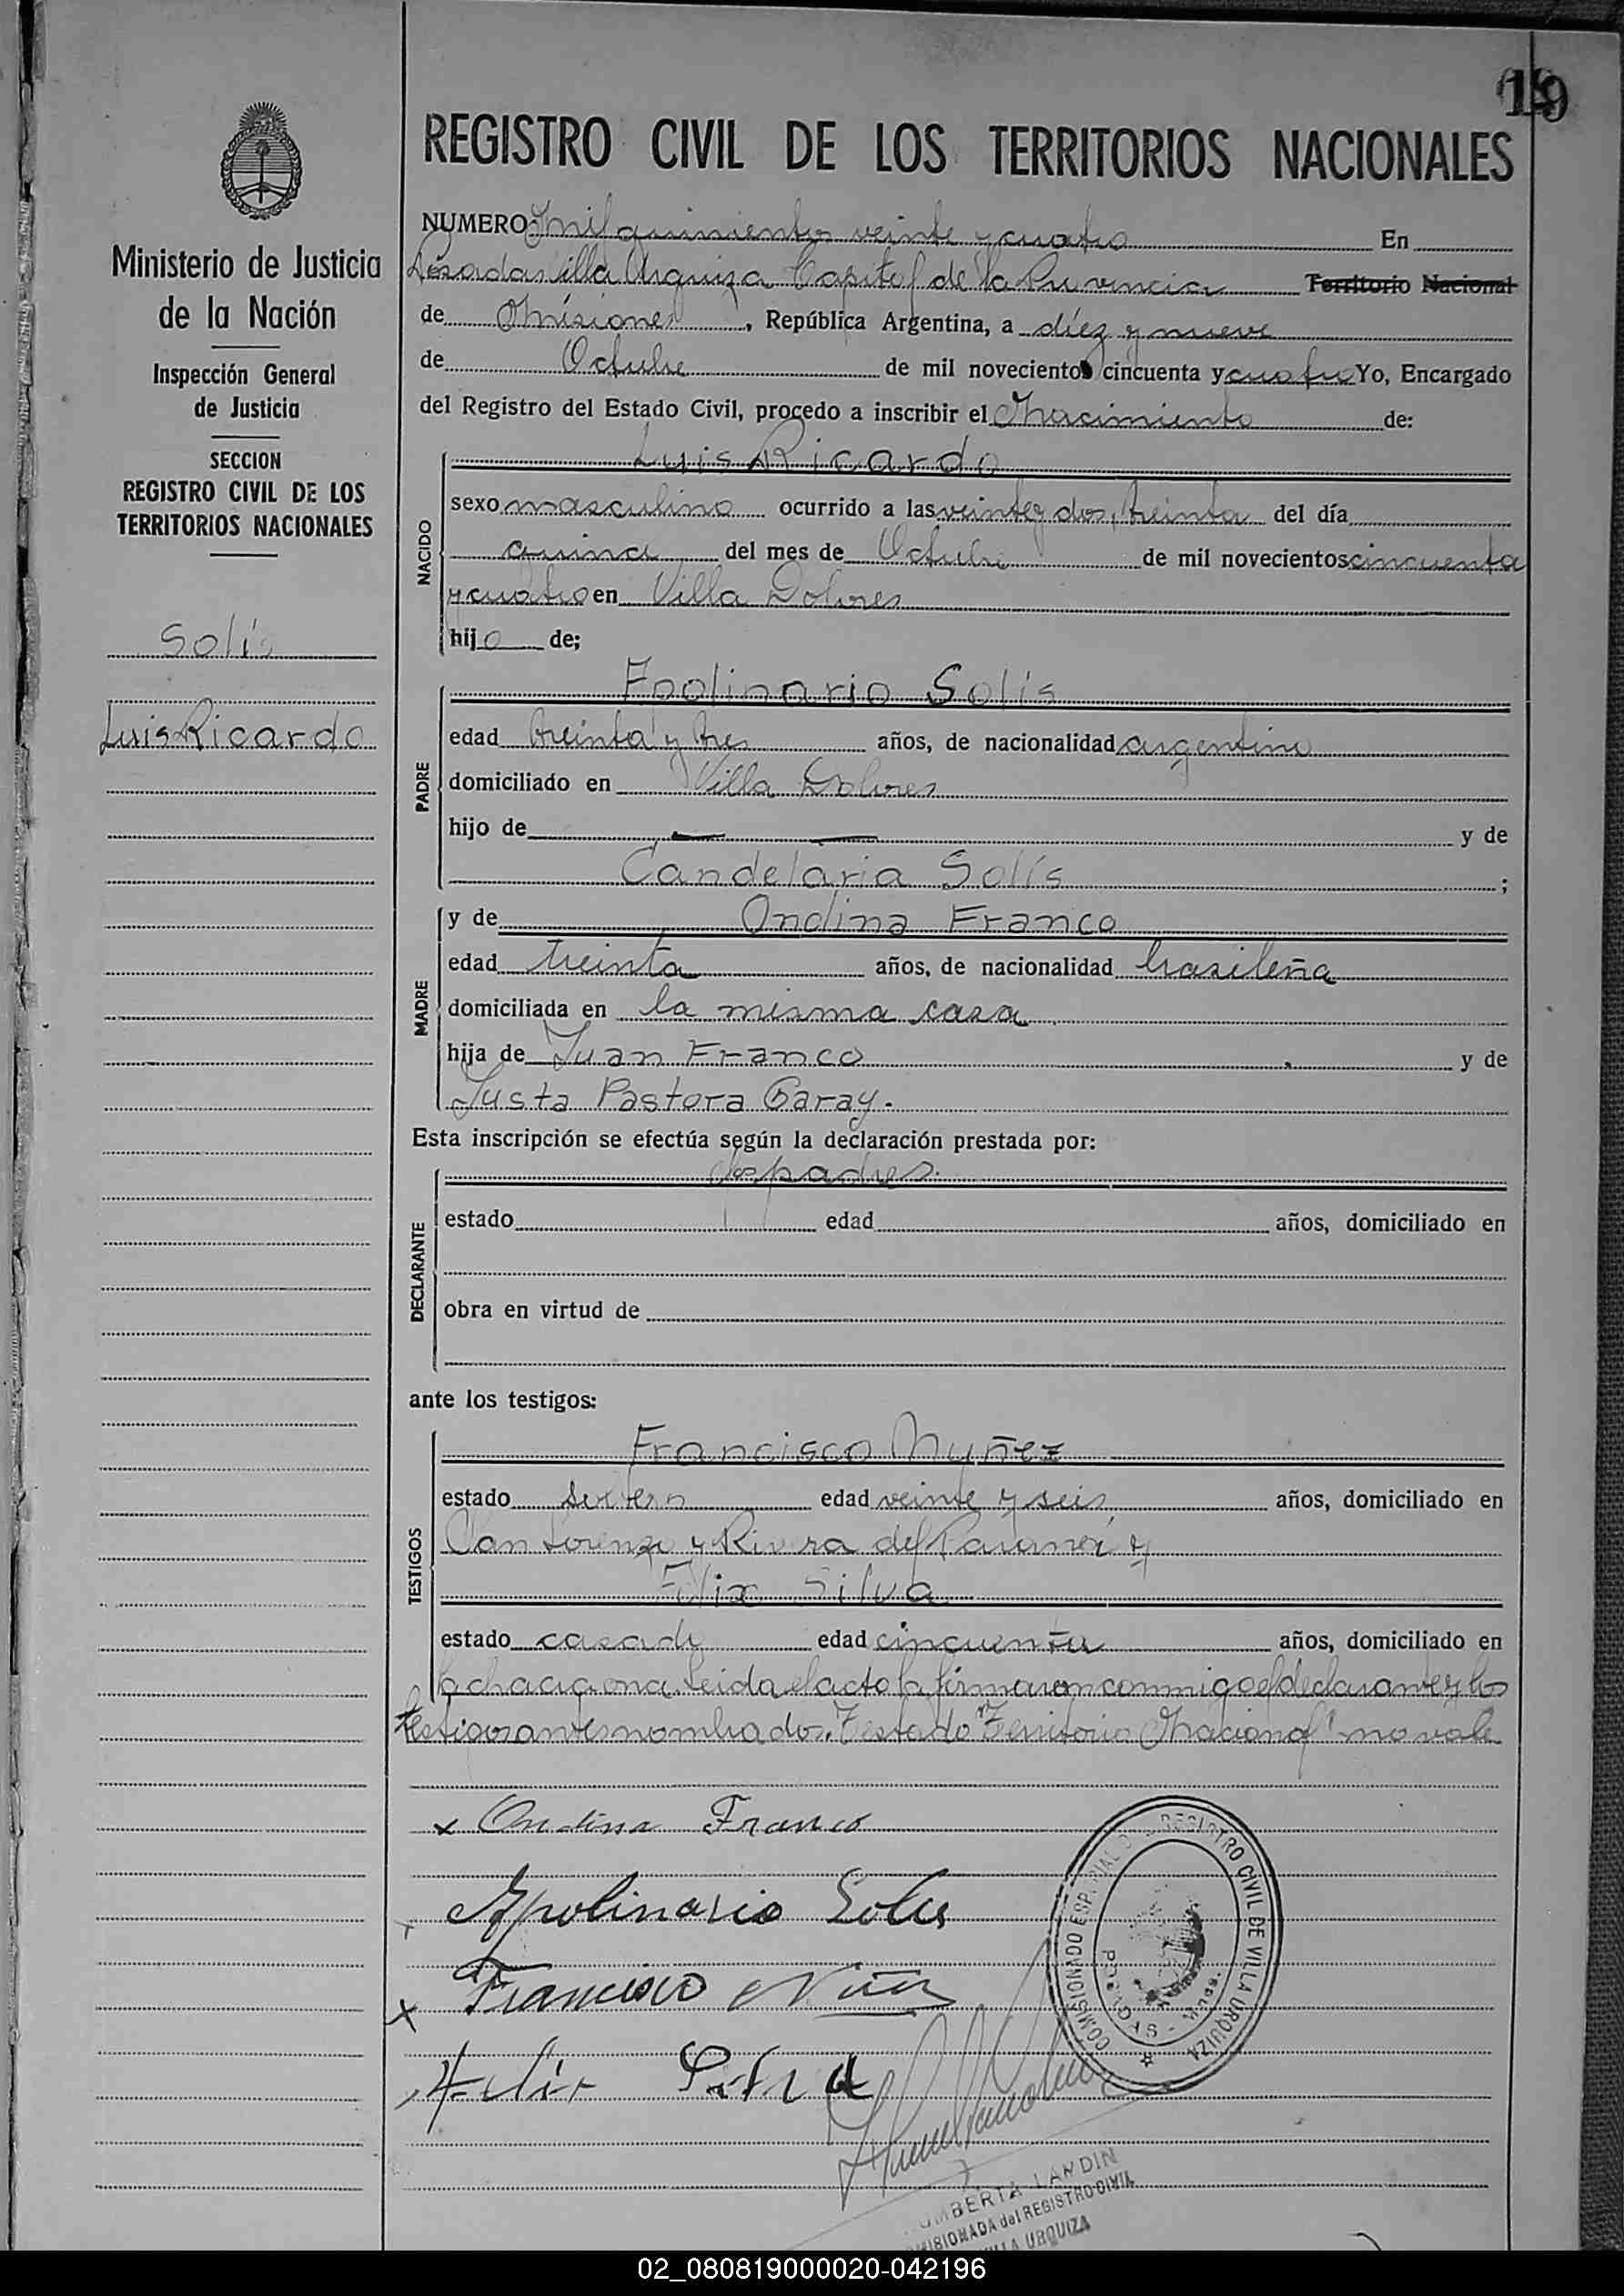 19
REGISTRO CIVIL DE LOS TERRITORIOS NACIONALES
Ministerio de Justicia
de la Nación
Inspección General
de Justicia
SECCION
REGISTRO CIVIL DE LOS
TERRITORIOS NACIONALES
Solís
Luis Ricardo
NUMERO mil quinientos veinte y cuatro En
Posadas Villa Urquiza Capital de la Provincia Territorio Nacional
de Misiones, República Argentina, a diez y nueve
de Octubre de mil novecientos cincuenta y cuatro Yo, Encargado
del Registro del Estado Civil, procedo a inscribir el Nacimiento de:
NACIDO
Luis Ricardo
sexo masculino ocurrido a las veinte y dos, treinta del día
quince del mes de Octubre de mil novecientos cincuenta
y cuatro en Villa Dolores
hijo de;
PADRE
Apolinario Solís
edad treinta y tres años, de nacionalidad argentino
domiciliado en Villa Dolores
hijo de — — y de
Candelaria Solís ;
MADRE
y de Ondina Franco
edad treinta años, de nacionalidad brasileña
domiciliada en la misma casa
hija de Juan Franco y de
Justa Pastora Garay.
Esta inscripción se efectúa según la declaración prestada por:
DECLARANTE
los padres.
estado edad años, domiciliado en
obra en virtud de
ante los testigos:
TESTIGOS
Francisco Nuñez
estado soltero edad veinte y seis años, domiciliado en
San Lorenzo y Rivera del Paraná y
Félix Silva
estado casado edad cincuenta años, domiciliado en
la chacra ona. Leida el acta la firmaron conmigo el declarante y los
testigos antes nombrados. Testado "Territorio Nacional" no vale
x Ondina Franco
x Apolinario Solis
x Francisco Nuñez
Felix Silva
COMISIONADO ESPECIAL DEL REGISTRO CIVIL DE VILLA URQUIZA
POSADAS - Mnes.
HUMBERTA LANDIN
COMISIONADA del REGISTRO CIVIL
VILLA URQUIZA
02_080819000020-042196